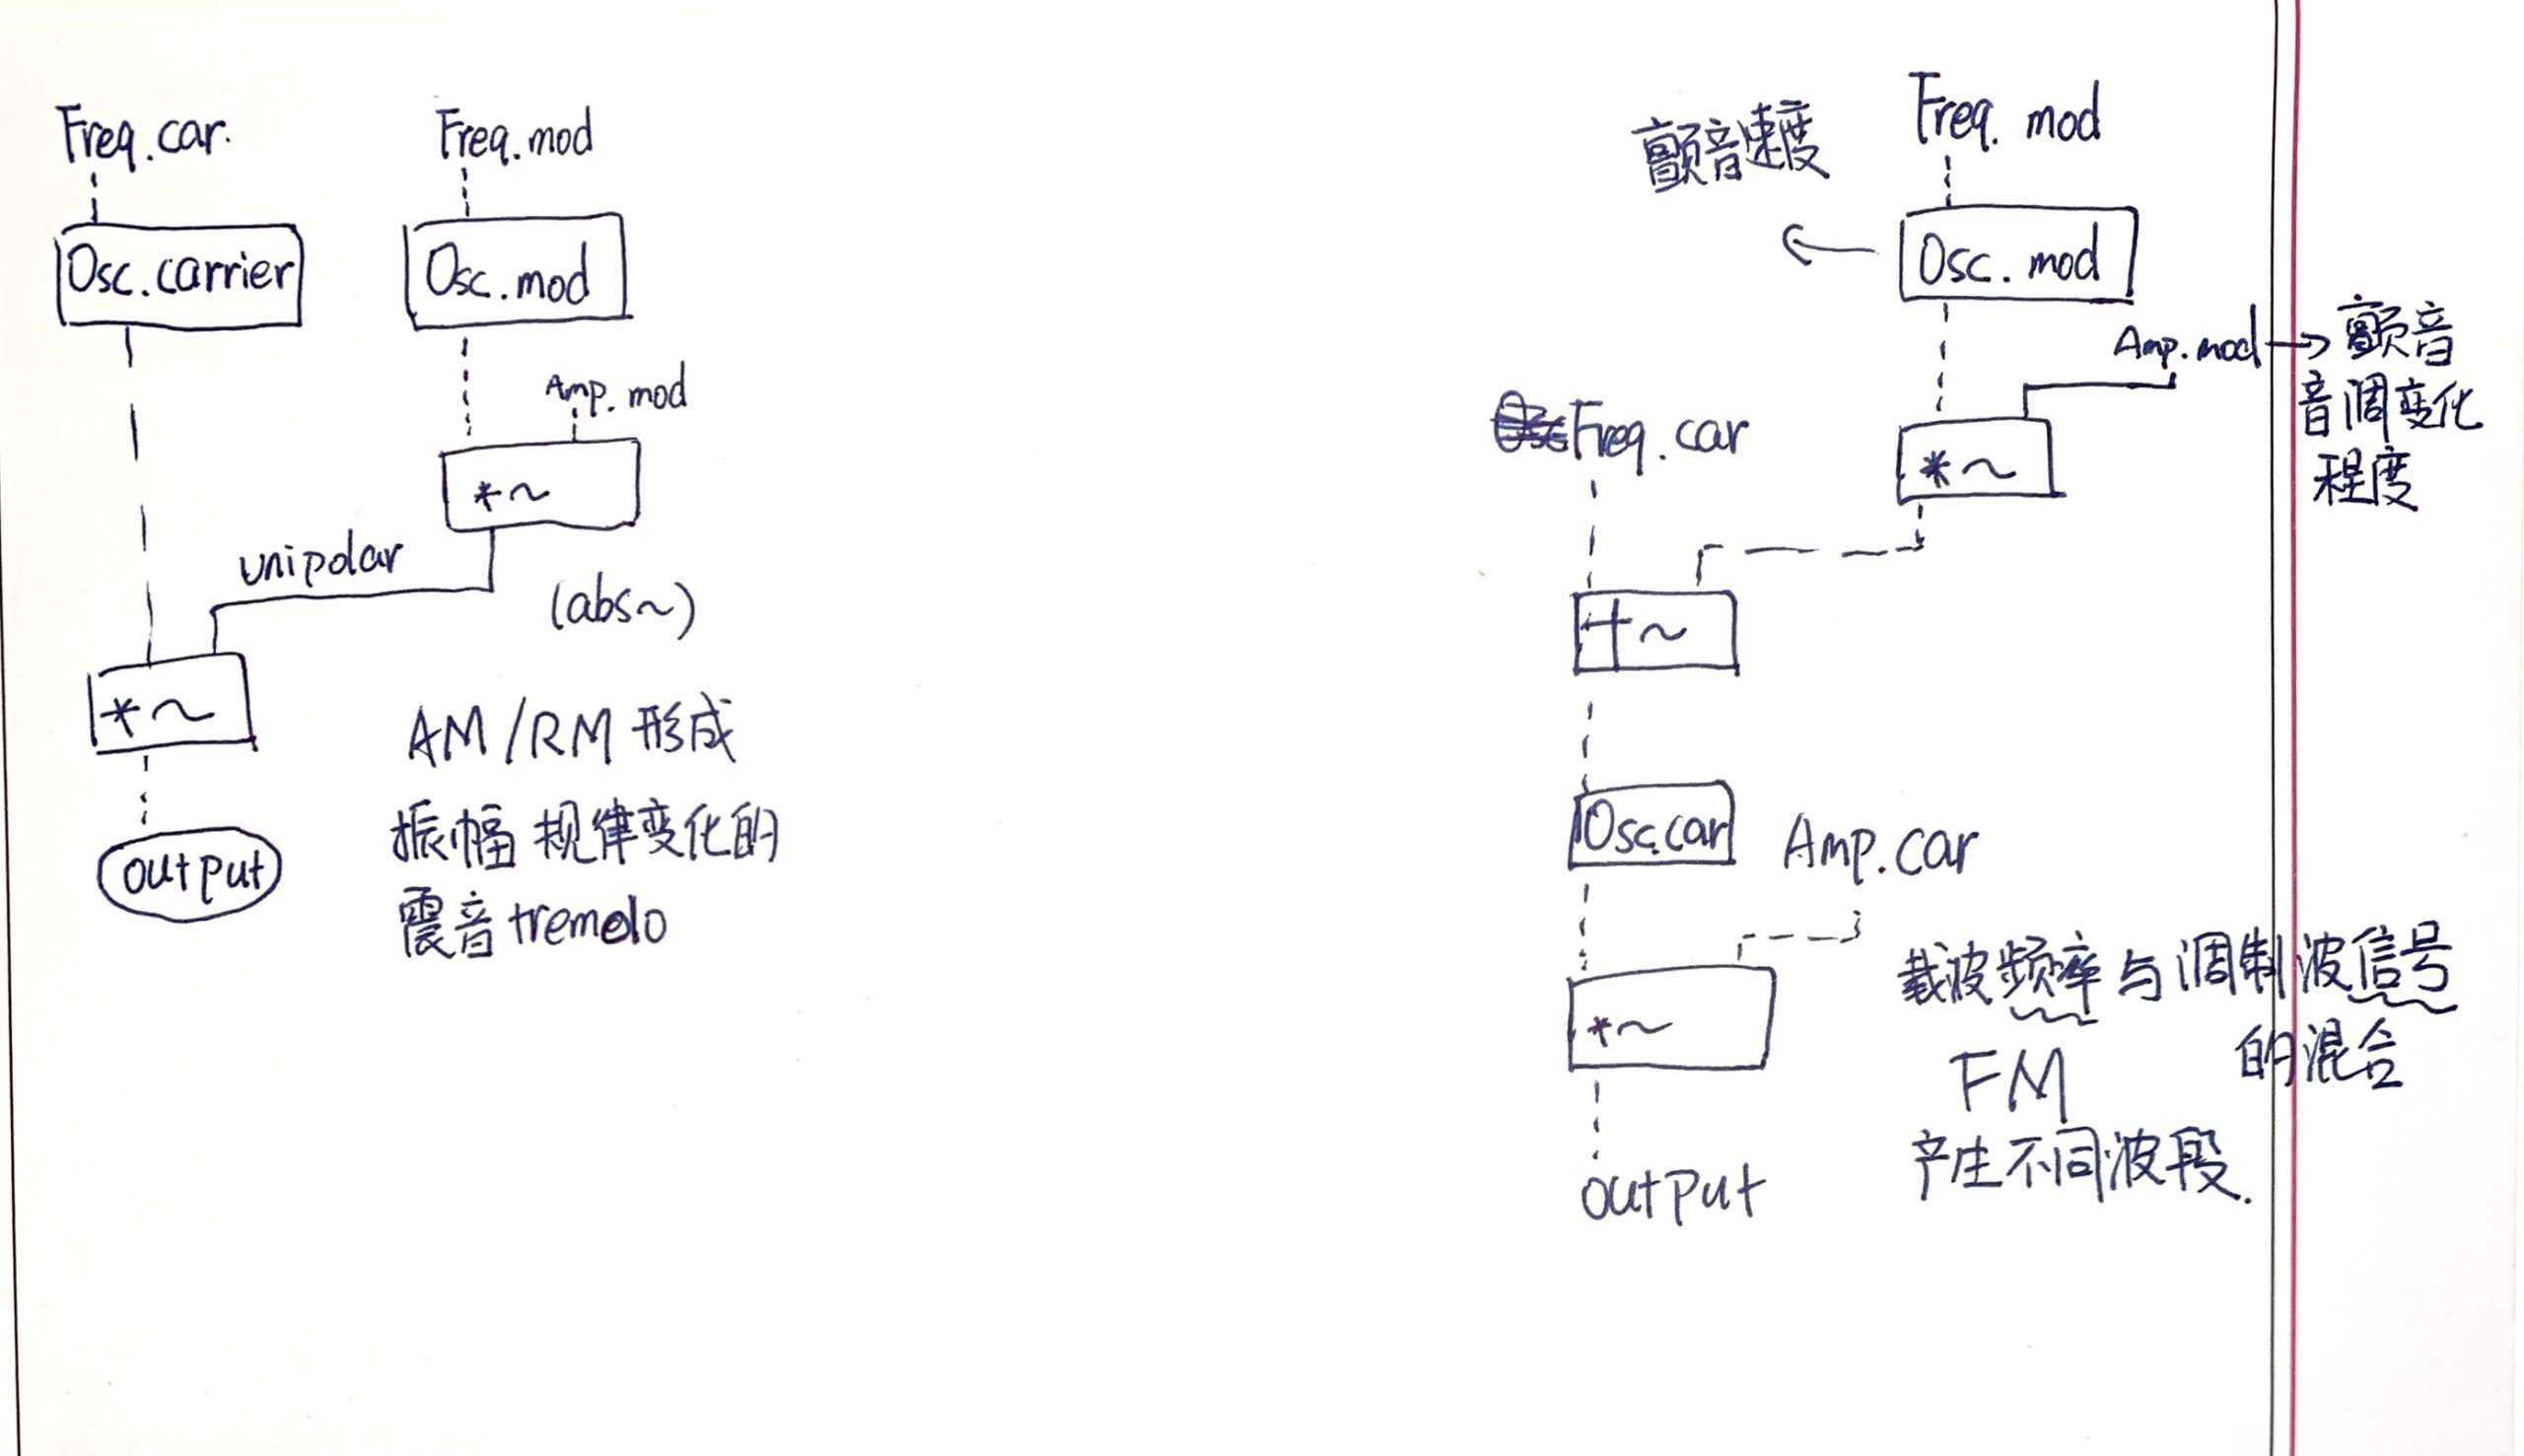 Freq.car.
Freq.mod
Osc.carrier
Osc.mod
Amp.mod
*~
unipolar
(abs~)
*~
output
AM/RM 形成
振幅 规律变化的
震音 tremolo
Freq. mod
颤音速度
Osc. mod
Amp.mod → 颤音
音调变化
程度
Freq.car
*~
+~
Osc.car
Amp.car
*~
output
载波频率与调制波信号
的混合
FM
产生不同波段.